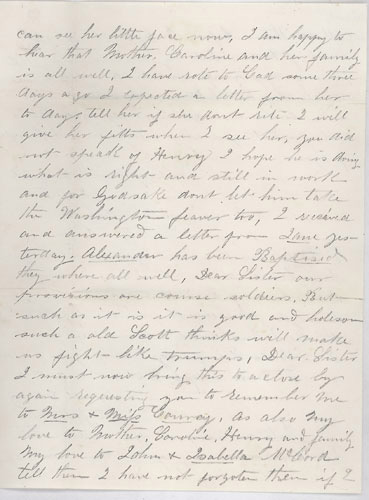 can see her little face now, I am happy to
hear that Mother, Caroline and her family
is all well, I have rote to Cad some three
days ago I expected a letter from her
to day, tell her if she dont rite I will
give her fitts when I see her, you did
not speak of Henry I hope he is doing
what is right and still in work
and for Godsake dont let him take
the Washington feaver too, I received
and answered a letter from Jane yes-
terday. Alexander has been Baptised
they where all well, Dear Sister our
provisions are course soldiers, But
such as it is it is good and holesom
such a old Scott thinks will make
us fight like trumps, Dear Sister
I must now bring this to a close by
again requesting you to remember me
to Mrs & Miss Conroy, as also my
love to Mother, Caroline, Henry and family
My love to John & Isabella McCord
tell them I have not forgoten them if I